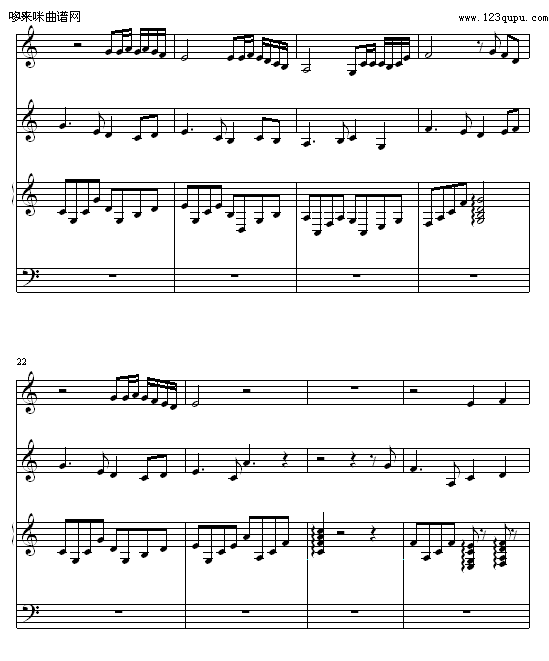 哆来咪曲谱网
www.123qupu.com
22